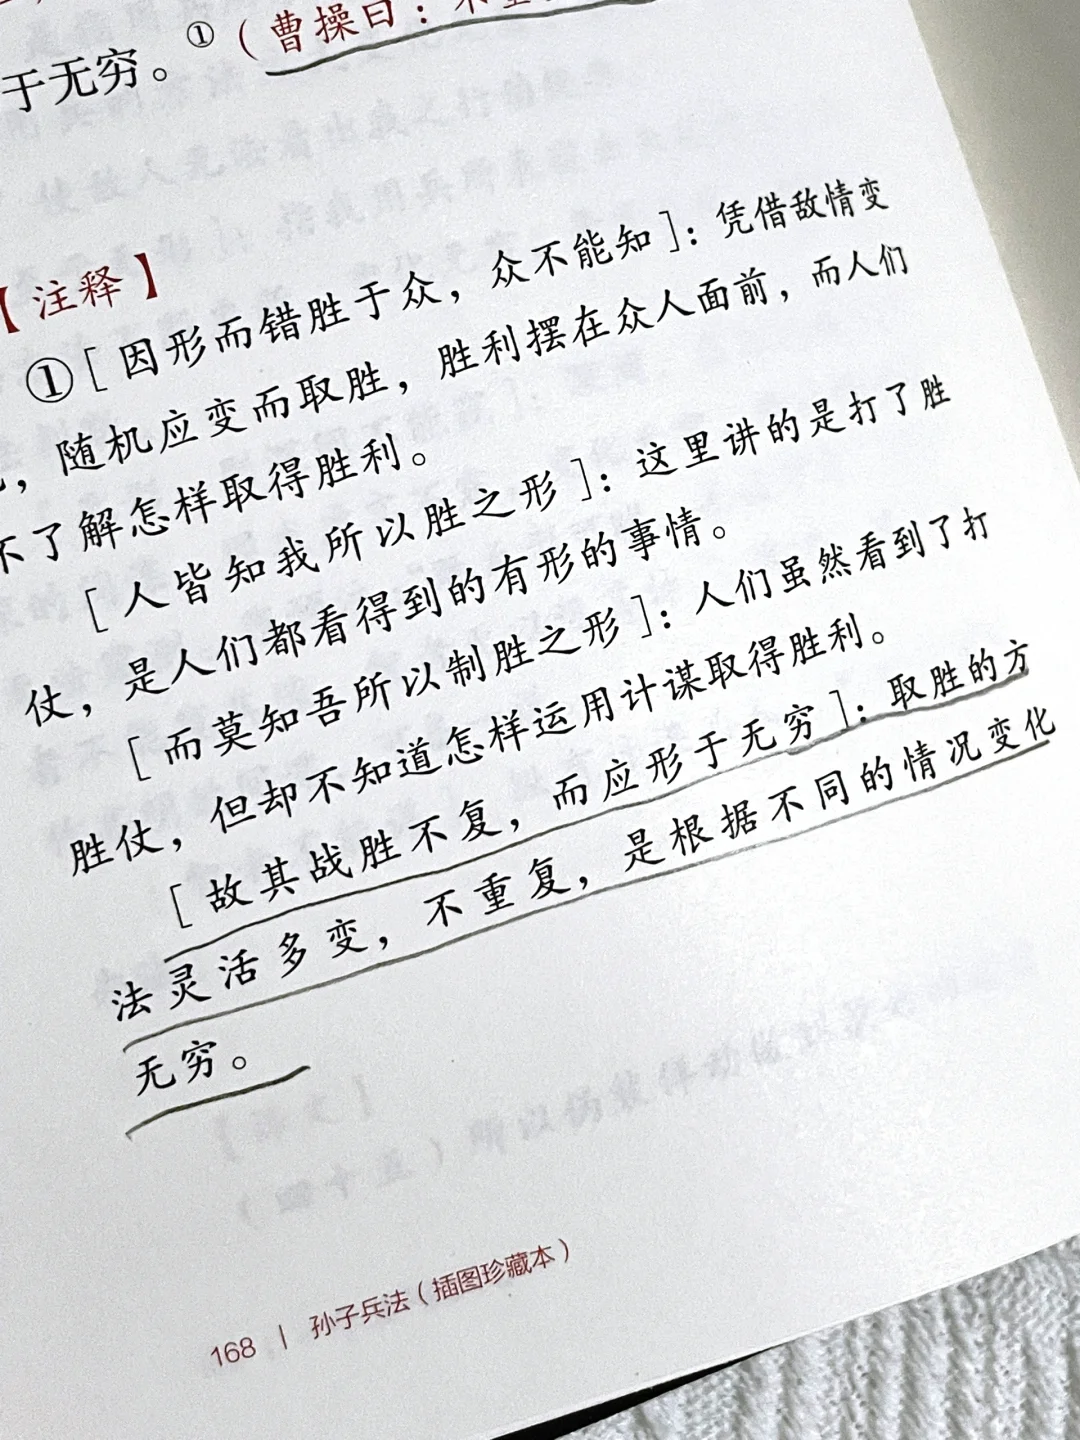 于无穷。①（曹操曰：不重
【注释】
①[因形而错胜于众，众不能知]：凭借敌情变
，随机应变而取胜，胜利摆在众人面前，而人们
不了解怎样取得胜利。
[人皆知我所以胜之形]：这里讲的是打了胜
仗，是人们都看得到的有形的事情。
[而莫知吾所以制胜之形]：人们虽然看到了打
胜仗，但却不知道怎样运用计谋取得胜利。
[故其战胜不复，而应形于无穷]：取胜的方
法灵活多变，不重复，是根据不同的情况变化
无穷。
168 | 孙子兵法（插图珍藏本）